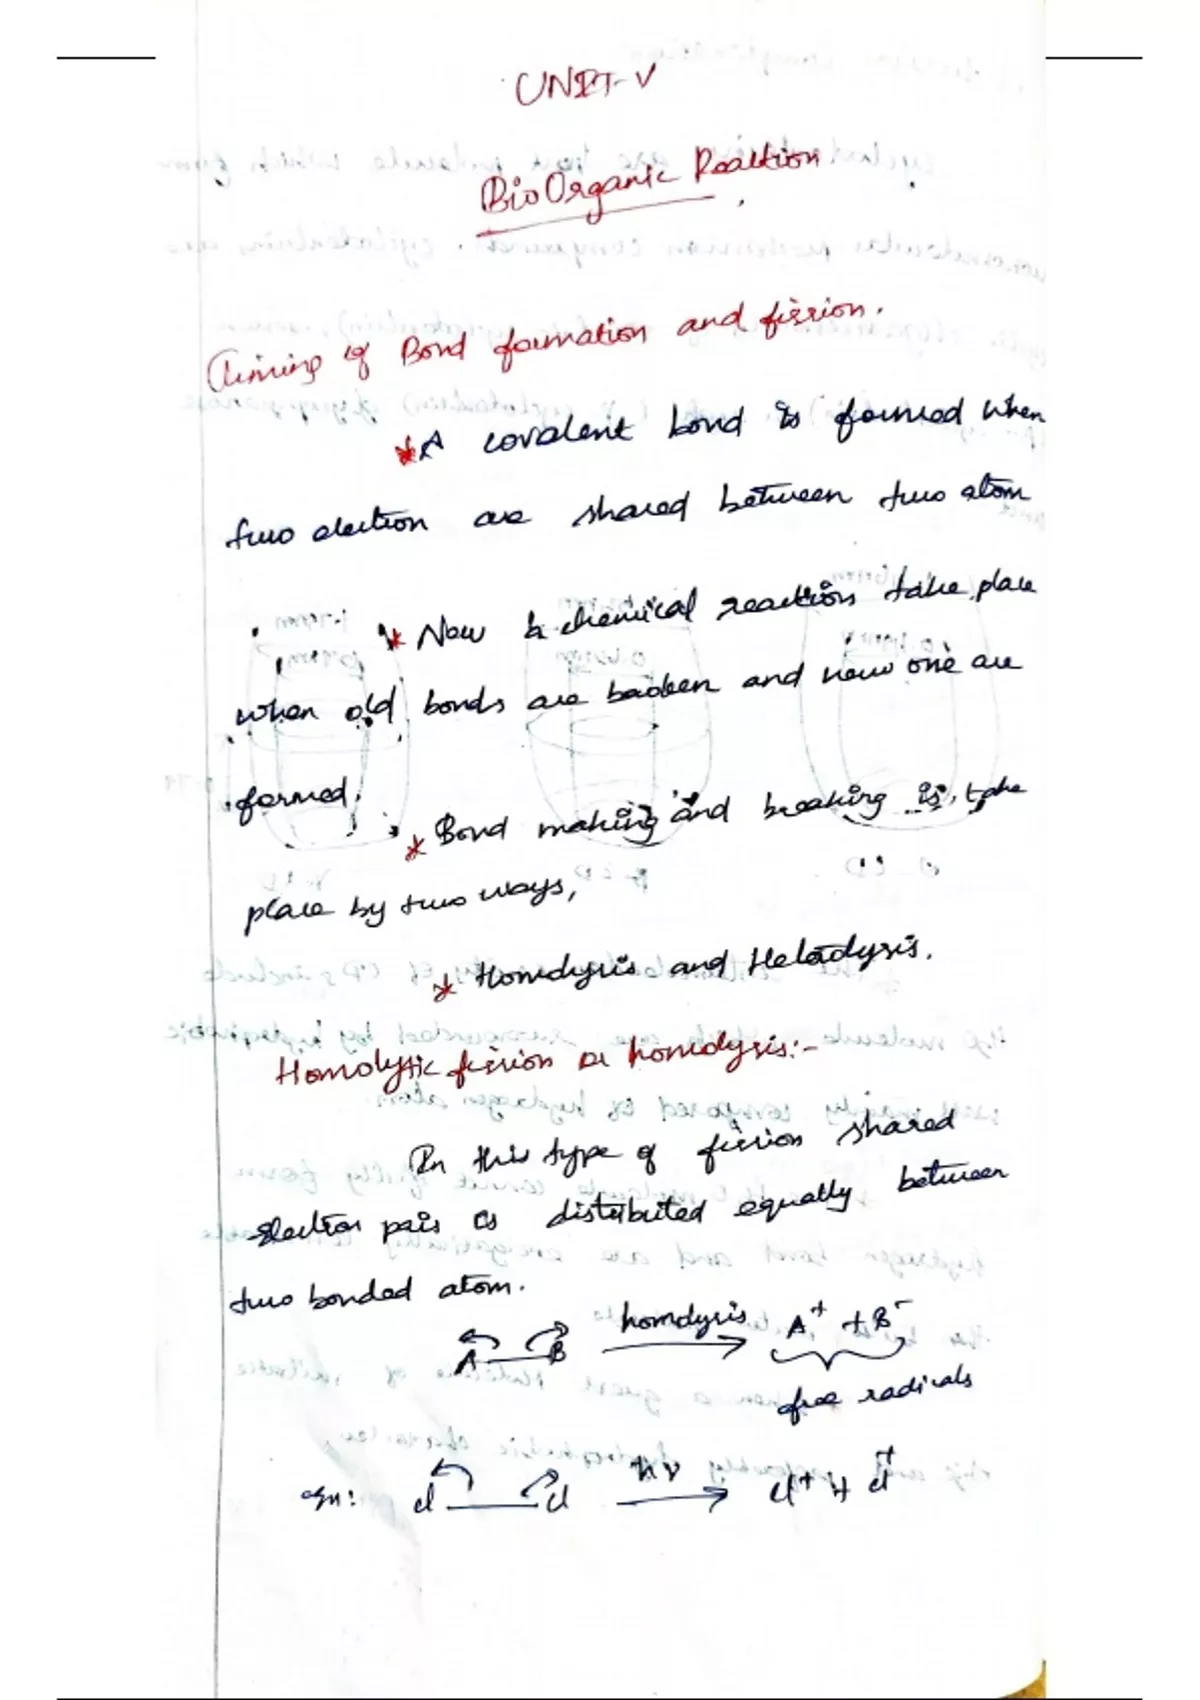 UNIT-V
BioOrganic Reaction
Timing of Bond formation and fission.
* A covalent bond is formed when
two electron are shared between two atom
* Now a chemical reaction take place
when old bonds are broken and new one are
formed.
* Bond making and breaking is take
place by two ways,
* Homolysis and Heterolysis.
Homolytic fission or homolysis:-
In this type of fission shared
electron pair is distributed equally between
two bonded atom.
A — B homolysis → A⁺ + B⁻
free radicals
Cl — Cl hν → Cl⁺ + Cl⁺